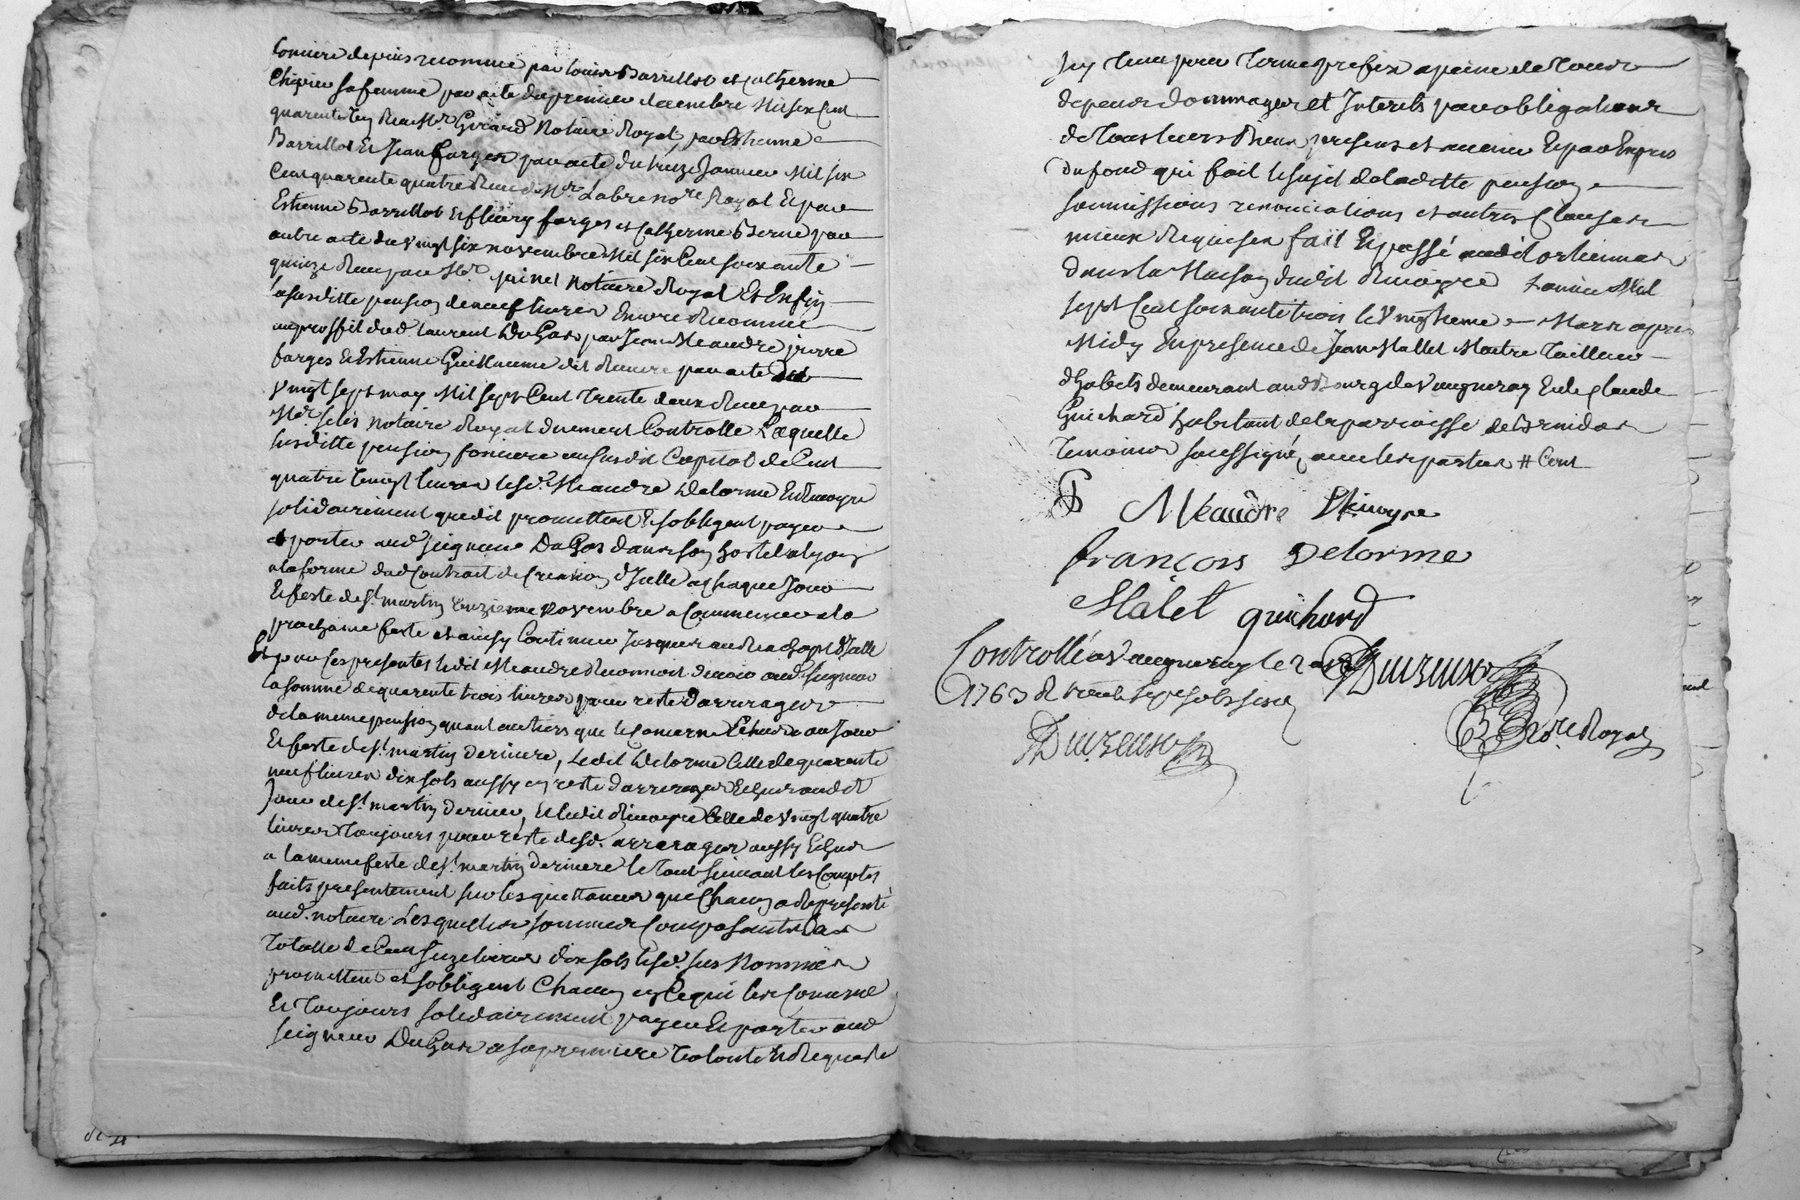 fonciere depuis reconnüe par louis Barrillot et catherine
Chipier sa femme par acte du premier decembre Mil six Cent
quarente reçu Mr. Girard Notaire Royal, par Estienne
Barrillot Et Jean farges par acte du treize Janvier Mil six
Cent quarente quatre Reçu Mr. Labre nore. Royal Et par
Estienne Barrillot Et fleury farges et Catherine Berne par
autre acte du vingt six novembre Mil six Cent soixante
quinze Reçu par Mr. joinet Notaire Royal Et Enfin
la susditte pension de neuf livres Encore Reconnüe
au proffit dud. laurent DuGas par Jean Meandre pierre
farges Et Estienne Guillaume dit Riviere par acte du
vingt sept may Mil sept Cent Trente deux Reçu par
Mr. notaire Royal duement Controllé Laquelle
susditte pension fonciere au susdit Capital de Cent
quatre vingt livres lesd. Meandre Delorme Et Rivoyre
solidairement que dit promettent Et sobligent payer
et porter aud. seigneur DuGas dans son hostel a lyon
a la forme dud. Contrat de Creation d'Icelle a chaque Jour
Et feste de st. martin onzieme Novembre a Commencer a la
prochaine feste et ainsy Continuer Jusques au Rachapt d'Icelle
Et par ces presentes ledit Meandre Reconnoit devoir aud. seigneur
la somme de quarente trois livres pour reste d'arrerages
de la meme pension quant au tiers que le concerne Echeus au Jour
Et feste de st. martin derniere, Ledit Delorme Celle de quarente
neuf livres dix sols aussy en reste d'arrerages Echeus audit
Jour de st. martin dernier, Et ledit Rivoyre Celle de vingt quatre
livres toujours pour reste desd. arrerages aussy Echus
a la meme feste de st. martin derniere le Tout suivant les Comptes
faits presentement sur les quittances que Chacun a Representé
aud. notaire Lesquelles sommes Composantes
Totalle de Cent seize livres dix sols lesd. sus Nommés
promettent et sobligent Chacun en Ce qui les Concerne
Et Toujours solidairement payer Et porter aud.
seigneur DuGas a sa premiere volonté Et Requeste
Icy Tenu pour Terme prefix a peine de Tous
depens dommages et Interets par obligations
de Tous leurs Biens presens et avenir Et par Expres
Du fond qui fait le sujet de la ditte pension
soumissions renonciations et autres Clauses
mieux Requises fait Et passé audit ortiennas
dans la Maison dudit Rivoyre Lannée Mil
sept Cent soixante trois le vingtieme Mars apres
Midy En presence de Jean Mallet Maitre Tailleur
dhabits demeurant aud. Bourg de vaugneray Et de Claude
Guichard habitant de la parroisse de Brindas
Temoins soussignés avec les parties # Cent
Meandre Rivoyre
françois Delorme
Malet guichard
Controllé a vaugneray le 2 avr
1763 R
Bore. Royal